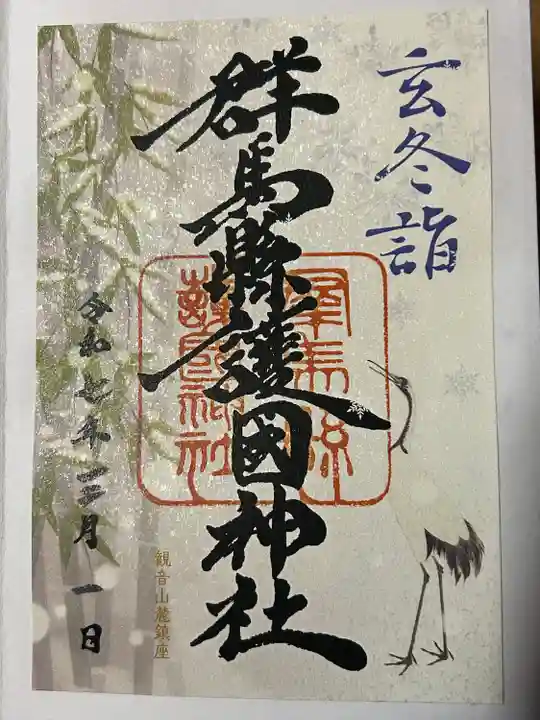 玄冬詣
群馬縣護國神社
群馬縣
護國神社
令和七年十二月一日
観音山麓鎮座